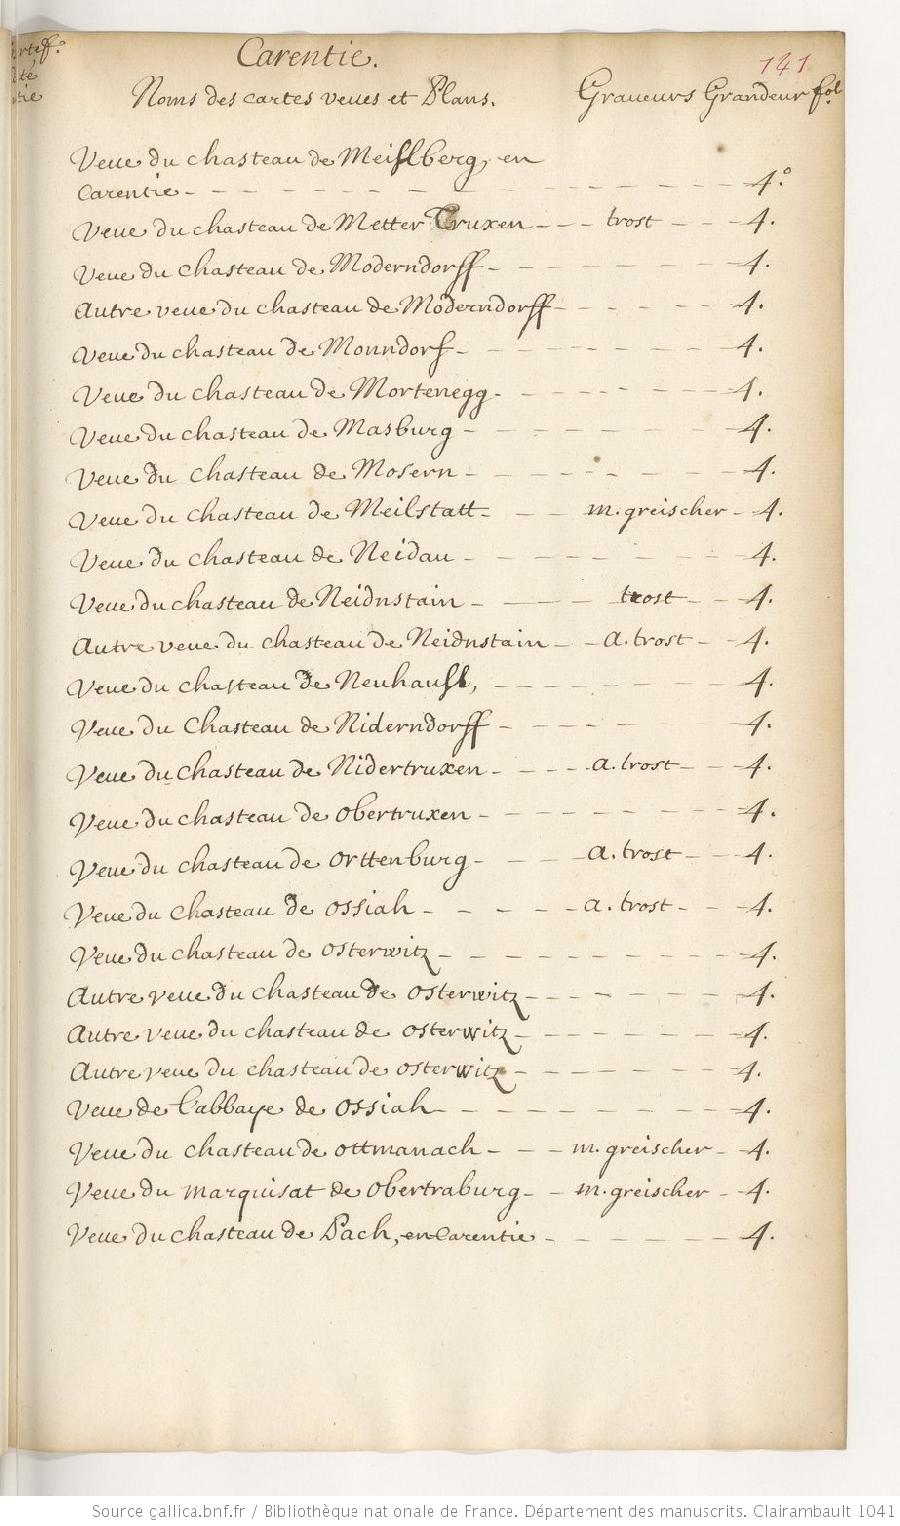 Carentie.
141
Noms des cartes veues et Plans. Graueurs Grandeur fol.
Veue du chasteau de Meislberg, en
Carentie - 4.°
Veue du chasteau de Metter Truxen - trost - 4.
Veue du chasteau de Moderndorff - 4.
Autre veue du chasteau de Moderndorff - 4.
Veue du chasteau de Monndorf - 4.
Veue du chasteau de Mortenegg - 4.
Veue du chasteau de Masburg - 4.
Veue du chasteau de Mosern - 4.
Veue du chasteau de Meilstatt - m. greischer - 4.
Veue du chasteau de Neidau - 4.
Veue du chasteau de Neidnstain - trost - 4.
Autre veue du chasteau de Neidnstain - a. trost - 4.
Veue du chasteau de Neuhausl, - 4.
Veue du chasteau de Niderndorff - 4.
Veue du chasteau de Nidertruxen - a. trost - 4.
Veue du chasteau de Obertruxen - 4.
Veue du chasteau de Orttenburg - a. trost - 4.
Veue du chasteau de Ossiah - a. trost - 4.
Veue du chasteau de Osterwitz - 4.
Autre veue du chasteau de Osterwitz - 4.
Autre veue du chasteau de Osterwitz - 4.
Autre veue du chasteau de Osterwitz - 4.
Veue de l'abbaye de Ossiah - 4.
Veue du chasteau de Ottmanach - m. greischer - 4.
Veue du marquisat de Obertraburg - m. greischer - 4.
Veue du chasteau de Pach, en Carentie - 4.
Source gallica.bnf.fr / Bibliothèque nationale de France. Département des manuscrits. Clairambault 1041